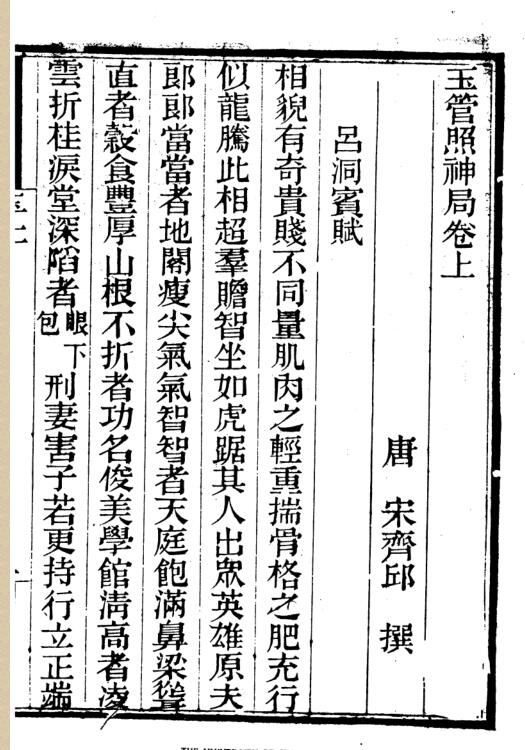 玉管照神局卷上
唐 宋齊邱 撰
呂洞賓賦
相貌有奇貴賤不同量肌肉之輕重揣骨格之肥充行
似龍騰此相超羣贍智坐如虎踞其人出眾英雄原夫
郎郎當當者地閣瘦尖氣氣智智者天庭飽滿鼻梁聳
直者穀食豐厚山根不折者功名俊美學館淸高者凌
雲折桂淚堂深陷者眼下包刑妻害子若更持行立正端